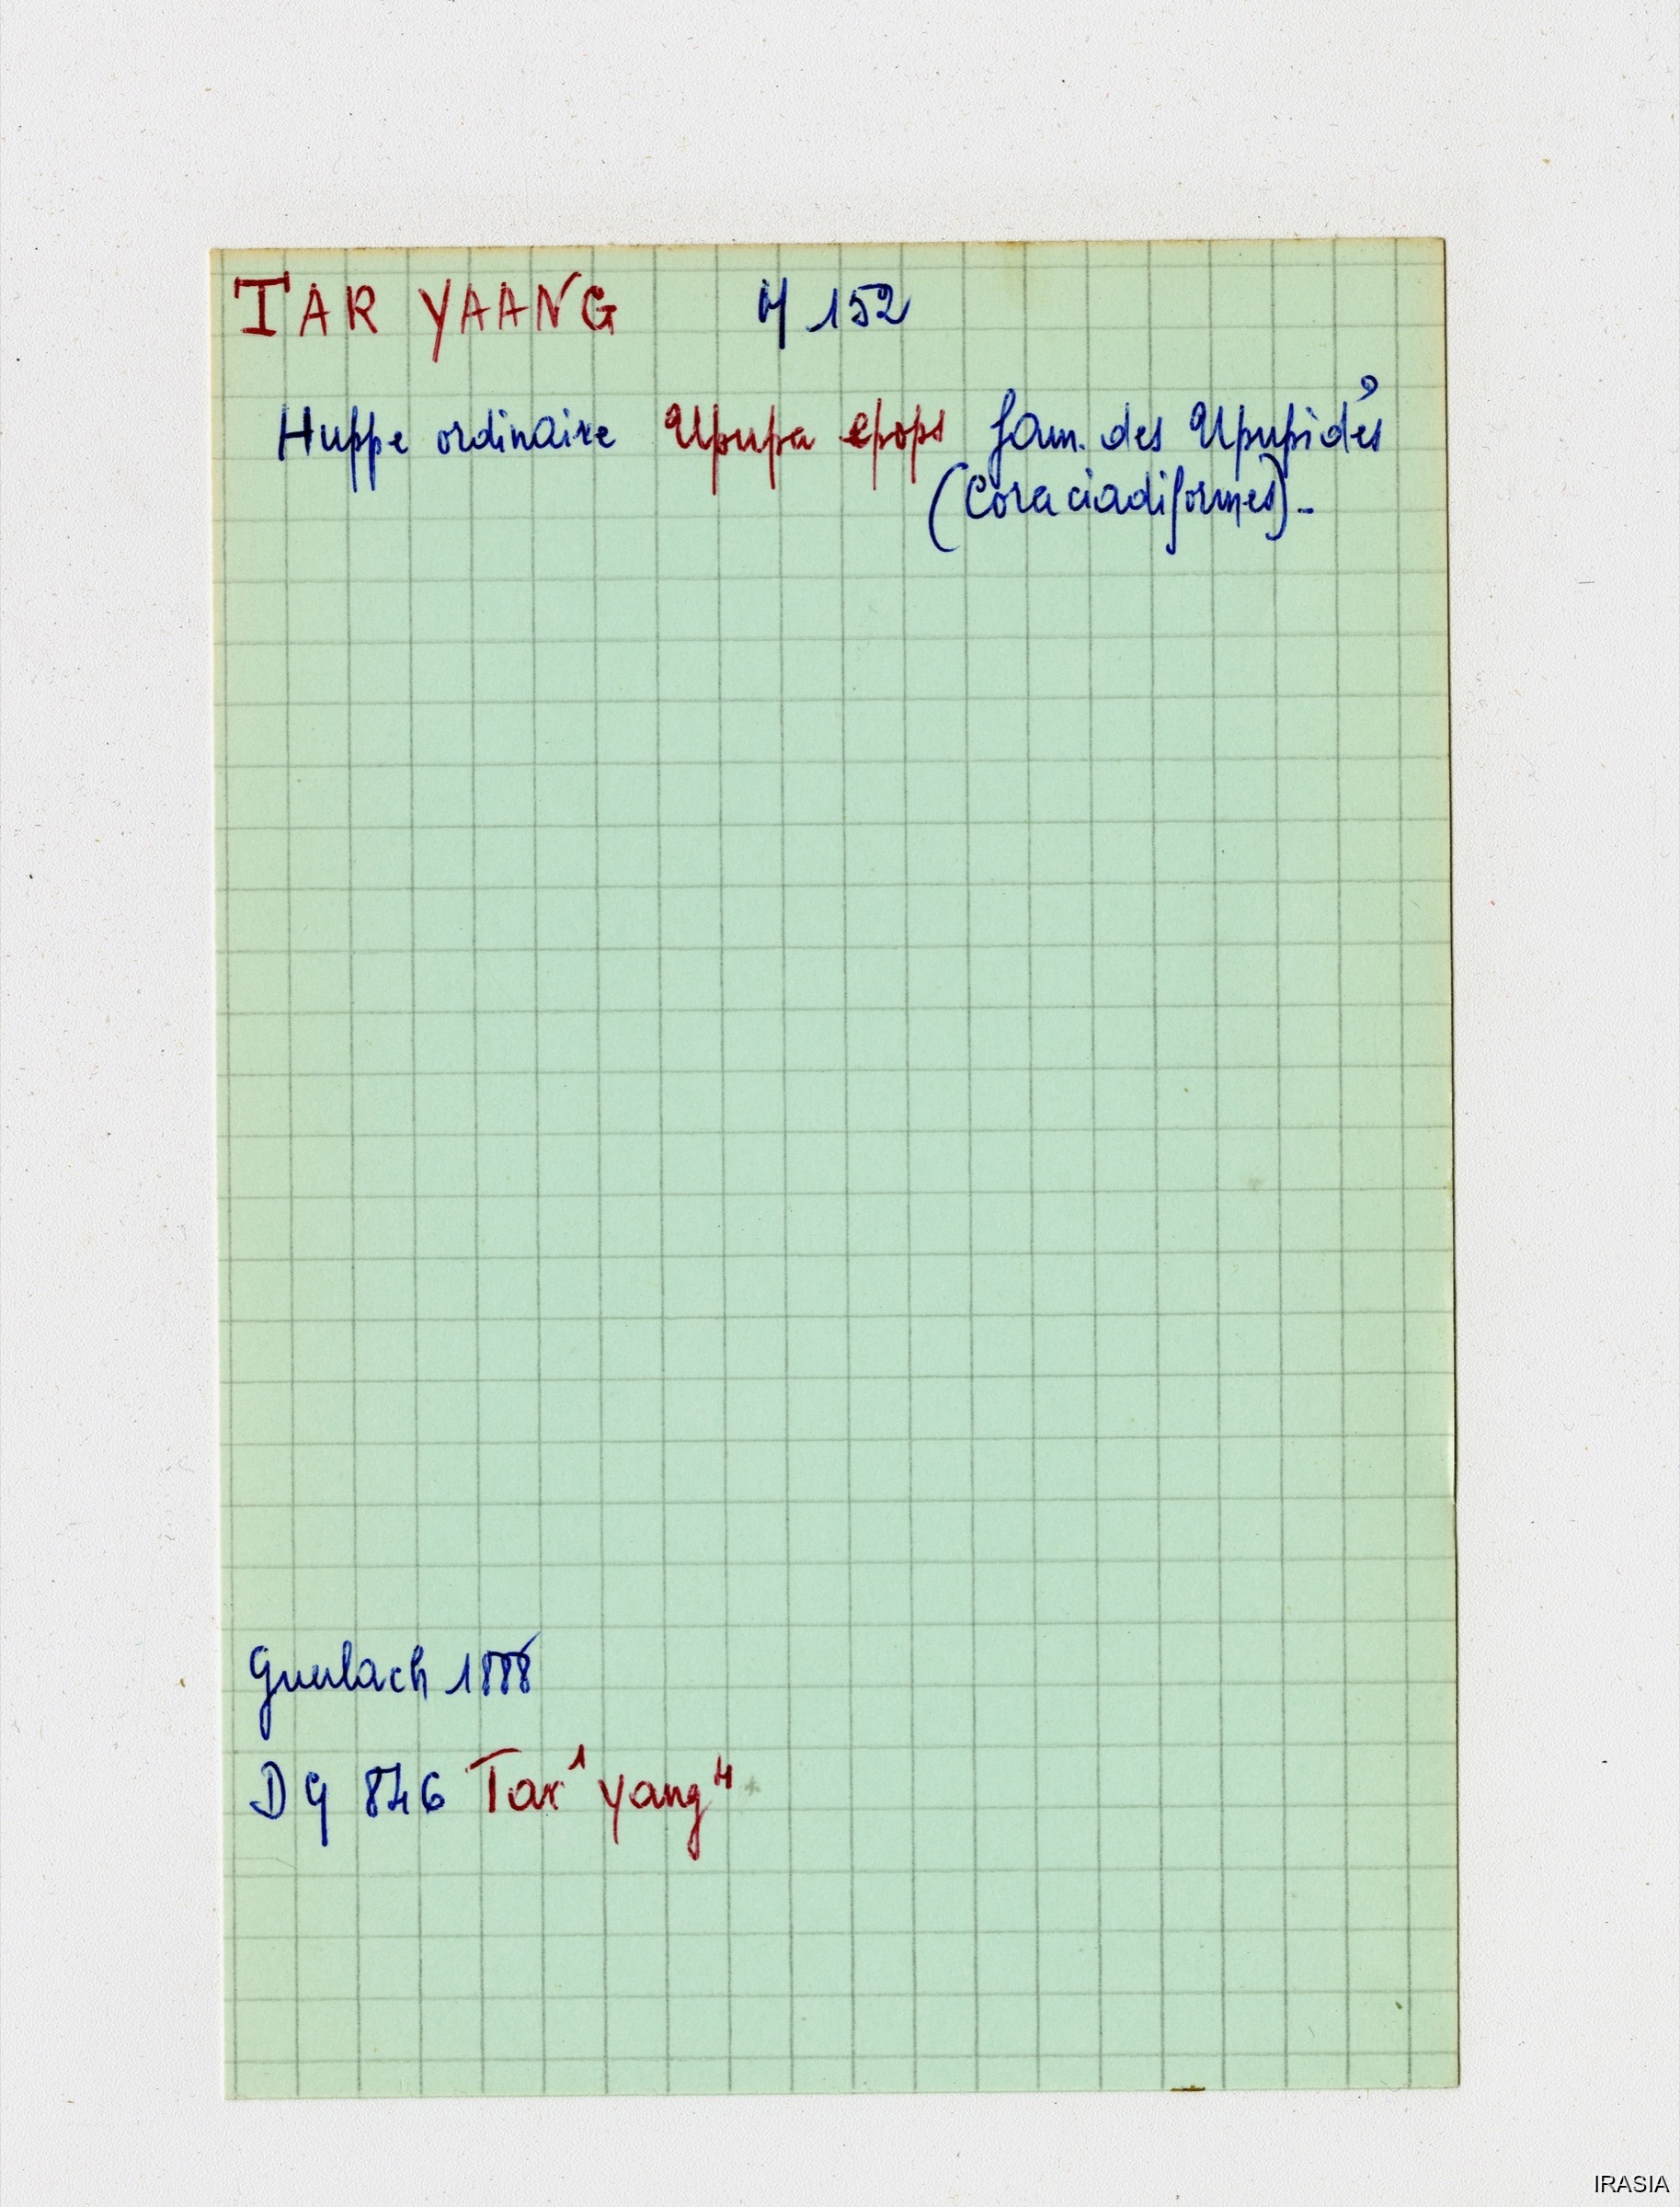 TAR YAANG M 152
Huppe ordinaire Upupa epops fam. des Upupidés
(Coraciadiformes).-
Guerlach 1888
DG 846 Tar¹ yang⁴
IRASIA